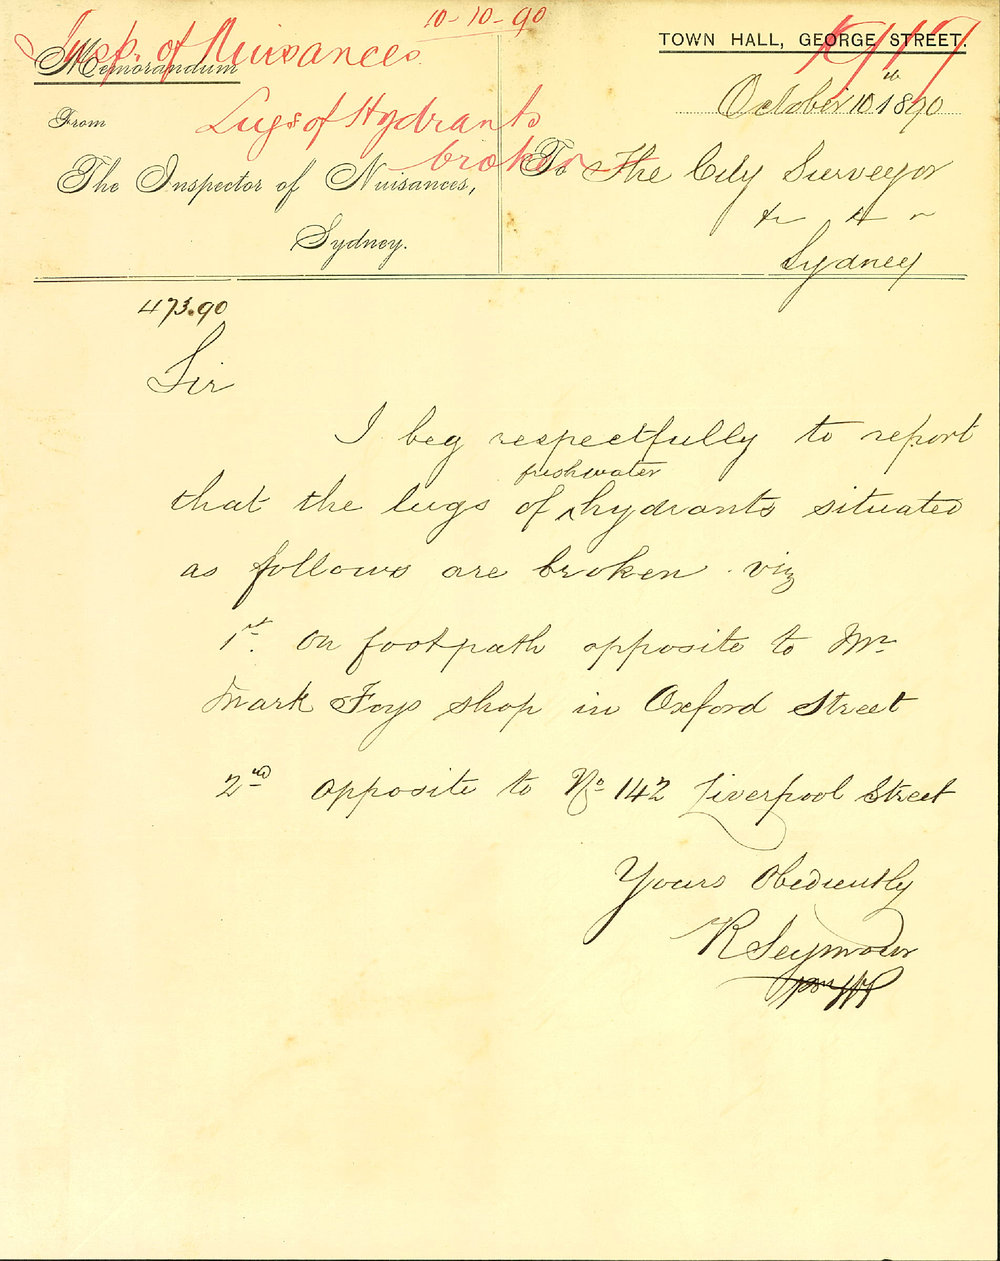 10-10-90
Insp. of Nuisances
TOWN HALL, GEORGE STREET.
Memorandum
October 10th 1890
From
Lugs of Hydrants
broken
The Inspector of Nuisances,
Sydney.
To The City Surveyor
Sydney
473.90
Sir
I beg respectfully to report
freshwater
that the lugs of ^ hydrants situated
as follows are broken. viz
1st. On footpath opposite to Mr
Mark Foys shop in Oxford Street
2nd opposite to No 142 Liverpool Street
Yours Obediently
R Seymour